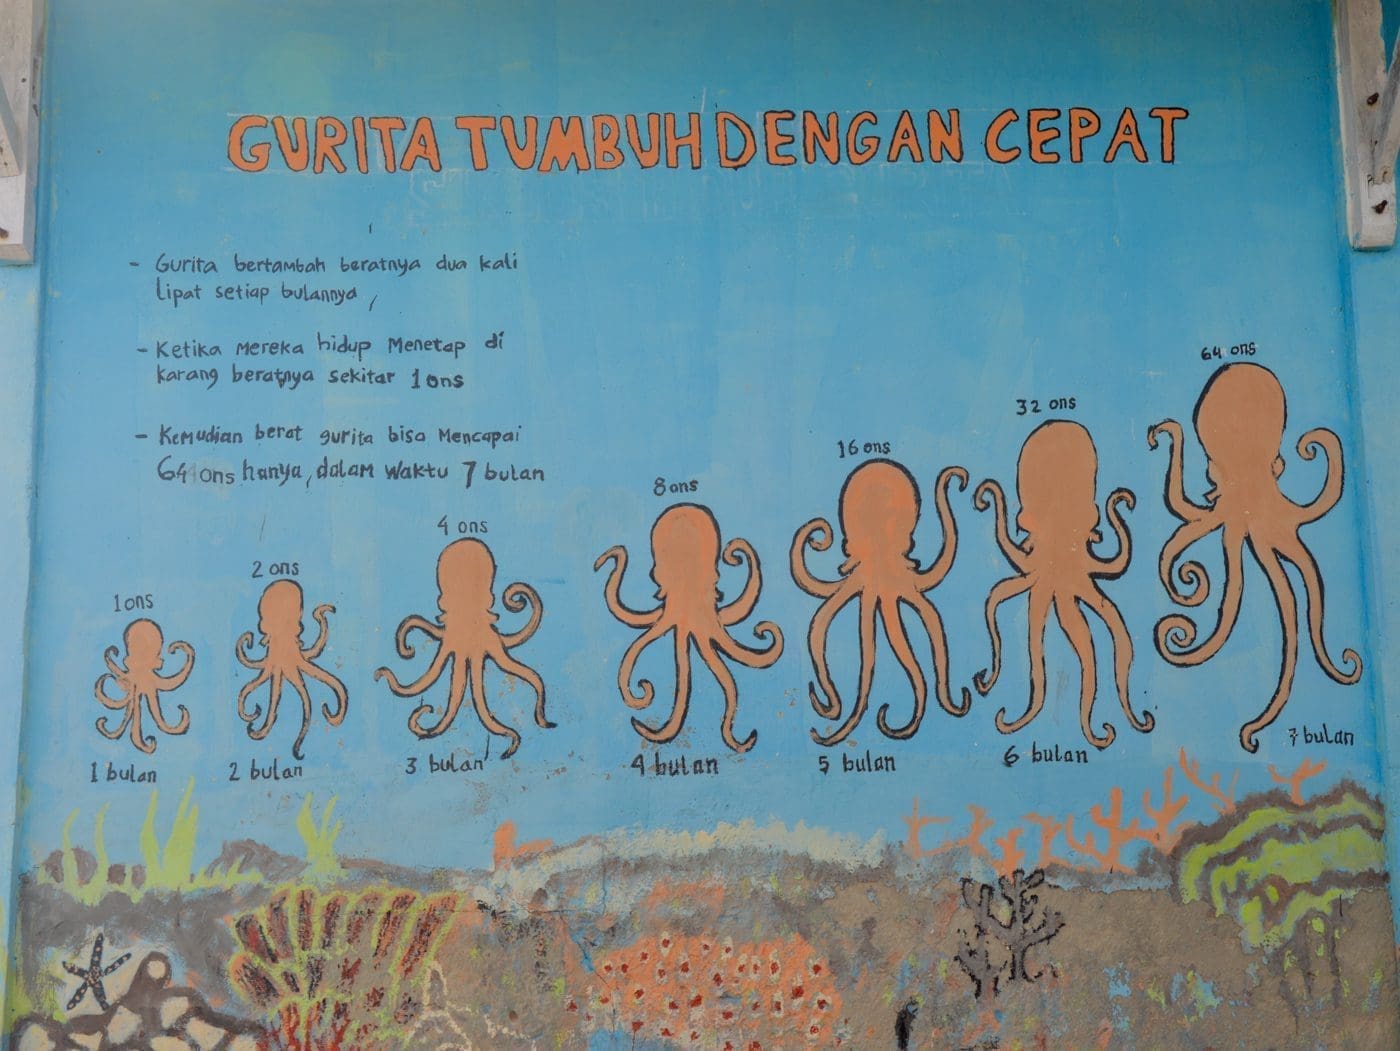 GURITA TUMBUH DENGAN CEPAT
- Gurita bertambah beratnya dua kali
lipat setiap bulannya,
- Ketika mereka hidup Menetap di
karang beratnya sekitar 1 ons
- Kemudian berat gurita bisa Mencapai
64 ons hanya, dalam waktu 7 bulan
1 ons
2 ons
4 ons
8 ons
16 ons
32 ons
64 ons
1 bulan
2 bulan
3 bulan
4 bulan
5 bulan
6 bulan
7 bulan